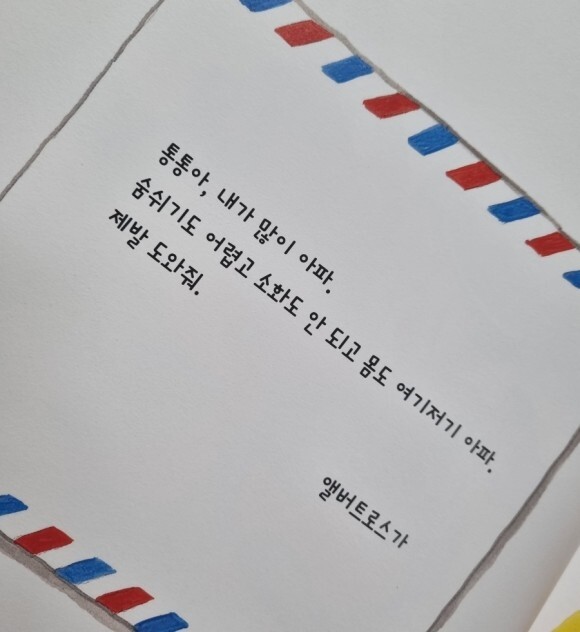 통통아, 내가 많이 아파.
숨쉬기도 어렵고 소화도 안 되고 몸도 여기저기 아파.
제발 도와줘.
앨버트로스가